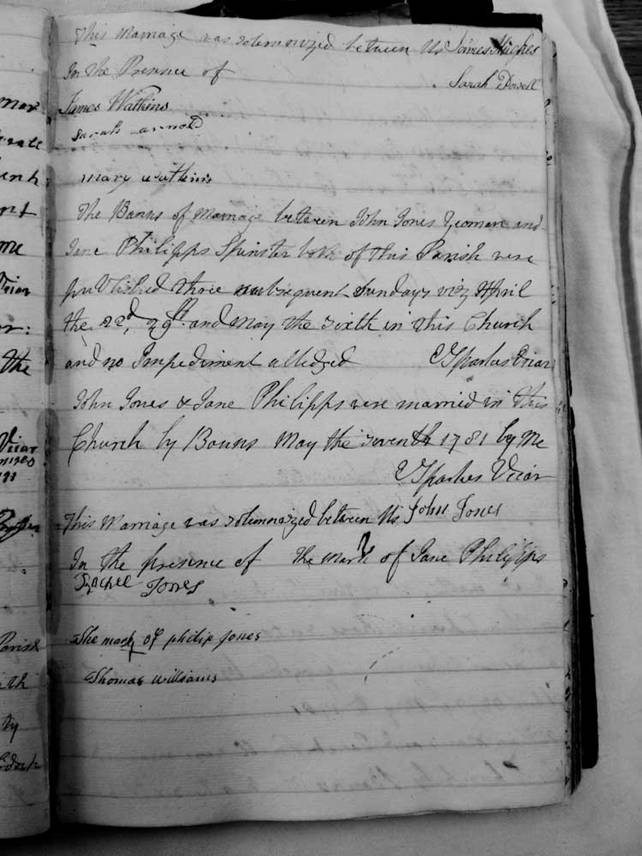 This Marriage was solemnized between Us James Hughes
In the Presence of Sarah Dowell
James Watkins
Sarah arnold
mary watkins
The Banns of Marriage between John Jones Yeoman and
Jane Philipps Spinster both of this Parish were
published three subsequent Sundays viz April
the 22d, 29th and May the Sixth in this Church
and no Impediment alledged Sparkes Vicar
John Jones & Jane Philipps were married in this
Church by Banns May the seventh 1781 by Me
Sparkes Vicar
This Marriage was solemnized between Us John Jones
In the presence of the mark of Jane Philipps
Jones
The mark of philip Jones
Thomas williams